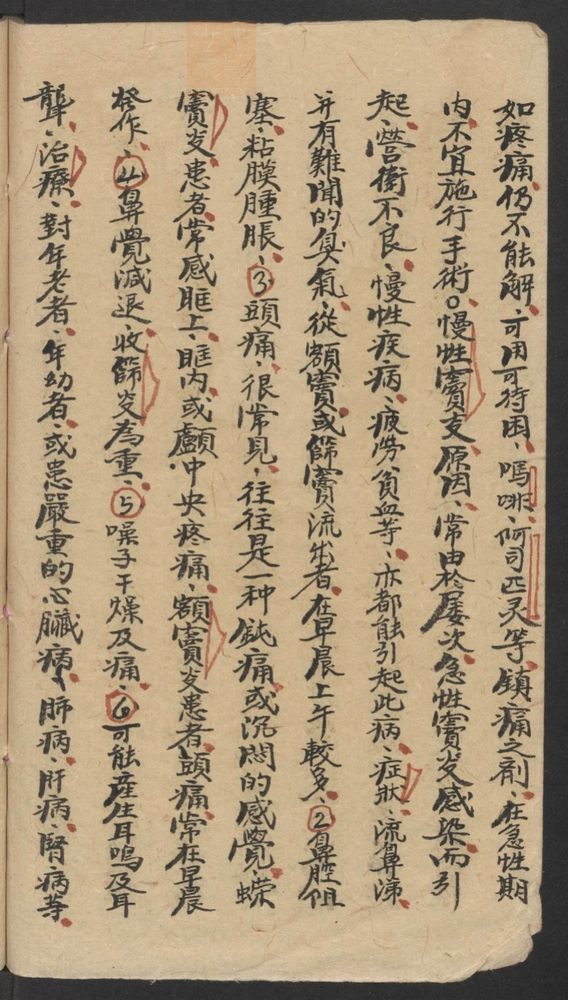 如疼痛仍不能解、可用可待因、嗎啡、阿司匹灵等鎮痛之剤、在急性期
内不宜施行手術。慢性竇支原因、常由於屡次急性竇炎感染而引
起、营衛不良、慢性疾病、疲劳貧血等、亦都能引起此病、症狀、流鼻涕、
并有難聞的臭氣、從額竇或篩竇流出者、在早晨上午較多、②鼻腔阻
塞、粘膜腫脹、③頭痛、很常見、往往是一种鈍痛或沉悶的感覺、蝶
竇炎患者常感眶上、眶内、或顱中央疼痛、額竇炎患者、頭痛常在早晨
發作、④鼻覺減退、收篩炎為重、⑤嗓子干燥及痛、⑥可能産生耳鳴及耳
聾、治療、對年老者、年幼者、或患嚴重的心臟病、肺病、肝病、腎病等、